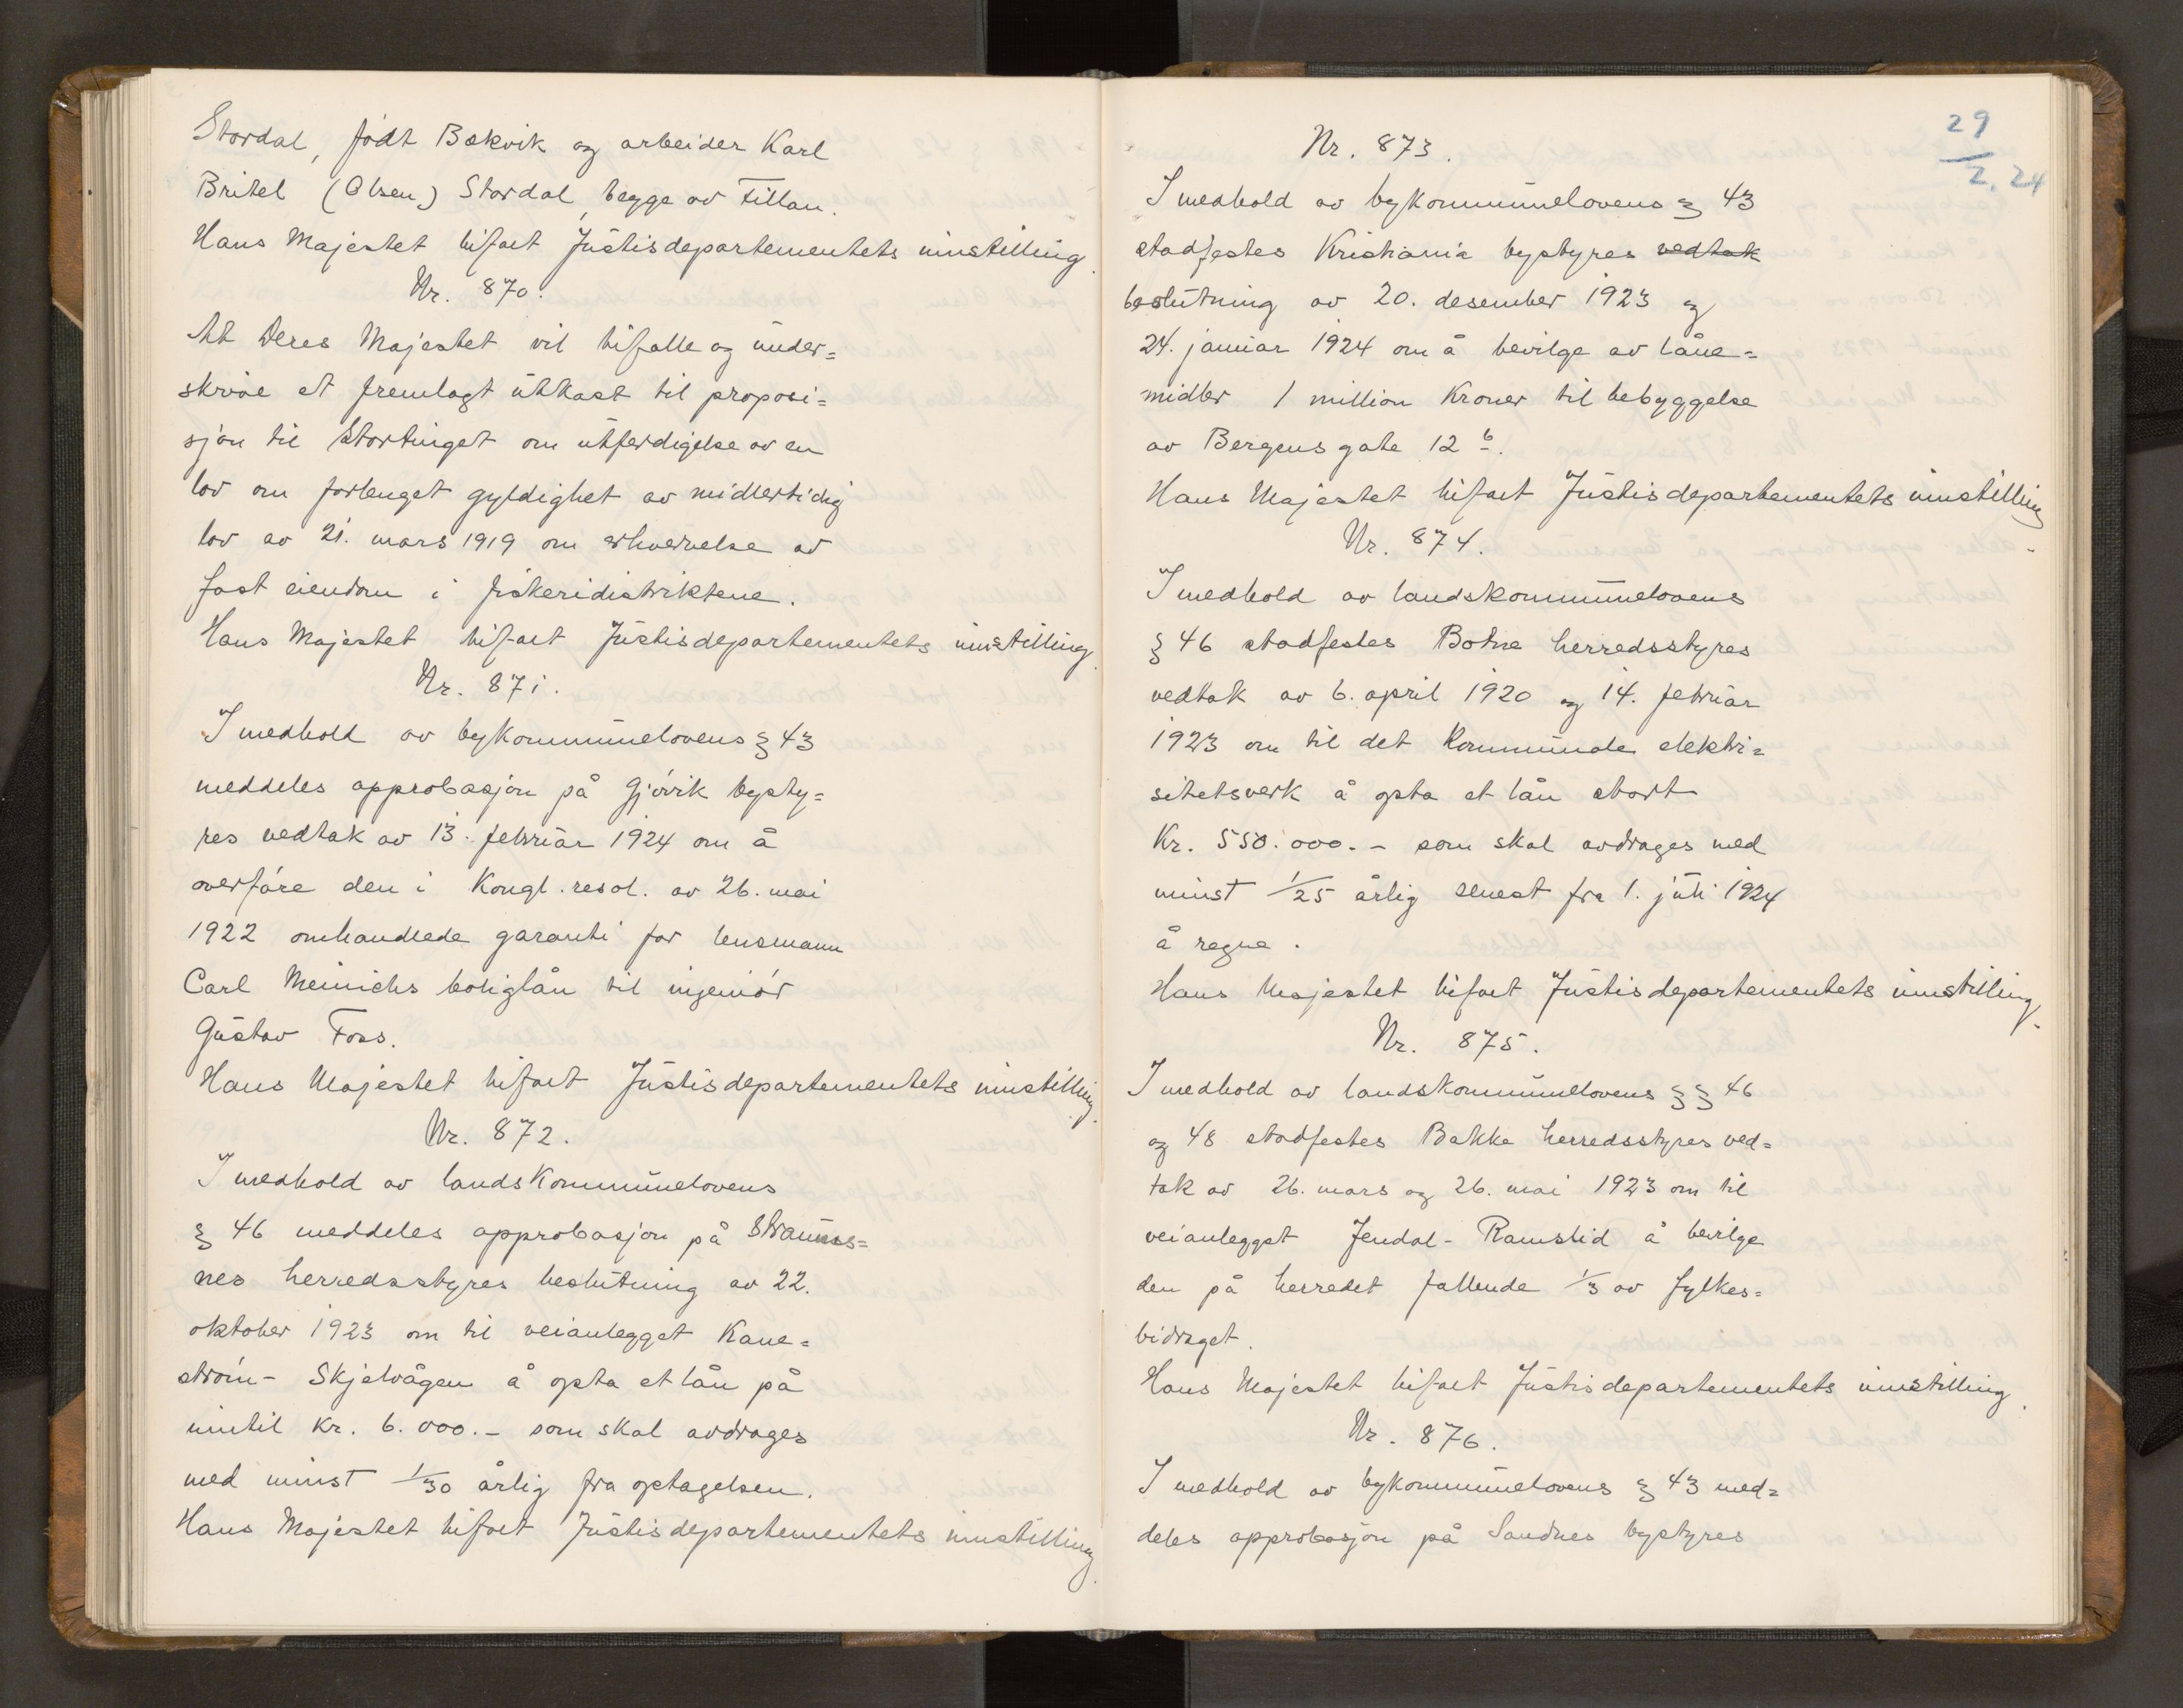 Stordal, født Bekvik og arbeider Karl
Britel (Olsen) Stordal, begge av Fillan.
Hans Majestet bifalt Justisdepartementets innstilling.
Nr. 870.
At Deres Majestet vil bifalle og under=
skrive et fremlagt utkast til proposi=
sjon til Stortinget om utferdigelse av en
lov om forlenget gyldighet av midlertidig
lov av 21. mars 1919 om erhvervelse av
fast eiendom i fiskeridistriktene.
Hans Majestet bifalt Justisdepartementets innstilling.
Nr. 871.
I medhold av bykommunelovens § 43
meddeles approbasjon på Gjøvik bysty=
res vedtak av 13. februar 1924 om å
overføre den i Kongl. resol. av 26. mai
1922 omhandlede garanti for lensmann
Carl Meinichs boliglån til ingeniør
Gustav Foss.
Hans Majestet bifalt Justisdepartementets innstilling.
Nr. 872.
I medhold av landskommunelovens
§ 46 meddeles approbasjon på Straums=
nes herredsstyres beslutning av 22.
oktober 1923 om til veianlegget Kane=
strøm - Skjelvågen å opta et lån på
inntil kr. 6.000.- som skal avdrages
med minst 1/30 årlig fra optagelsen.
Hans Majestet bifalt Justisdepartementets innstilling.
29
2. 24
Nr. 873.
I medhold av bykommunelovens § 43
stadfestes Kristiania bystyres vedtak
beslutning av 20. desember 1923 og
24. januar 1924 om å bevilge av låne=
midler 1 million kroner til bebyggelse
av Bergensgate 12 b.
Hans Majestet bifalt Justisdepartementets innstilling.
Nr. 874.
I medhold av landskommunelovens
§ 46 stadfestes Botne herredsstyres
vedtak av 6. april 1920 og 14. februar
1923 om til det kommunale elektri=
sitetsverk å opta et lån stort
Kr. 550.000.- som skal avdrages med
minst 1/25 årlig senest fra 1. juli 1924
å regne.
Hans Majestet bifalt Justisdepartementets innstilling.
Nr. 875.
I medhold av landskommunelovens §§ 46
og 48 stadfestes Bakke herredsstyres ved=
tak av 26. mars og 26. mai 1923 om til
veianlegget Jendal - Ramslid å bevilge
den på herredet fallende 1/3 av fylkes=
bidraget.
Hans Majestet bifalt Justisdepartementets innstilling.
Nr. 876.
I medhold av bykommunelovens § 43 med=
deles approbasjon på Sandnes bystyres